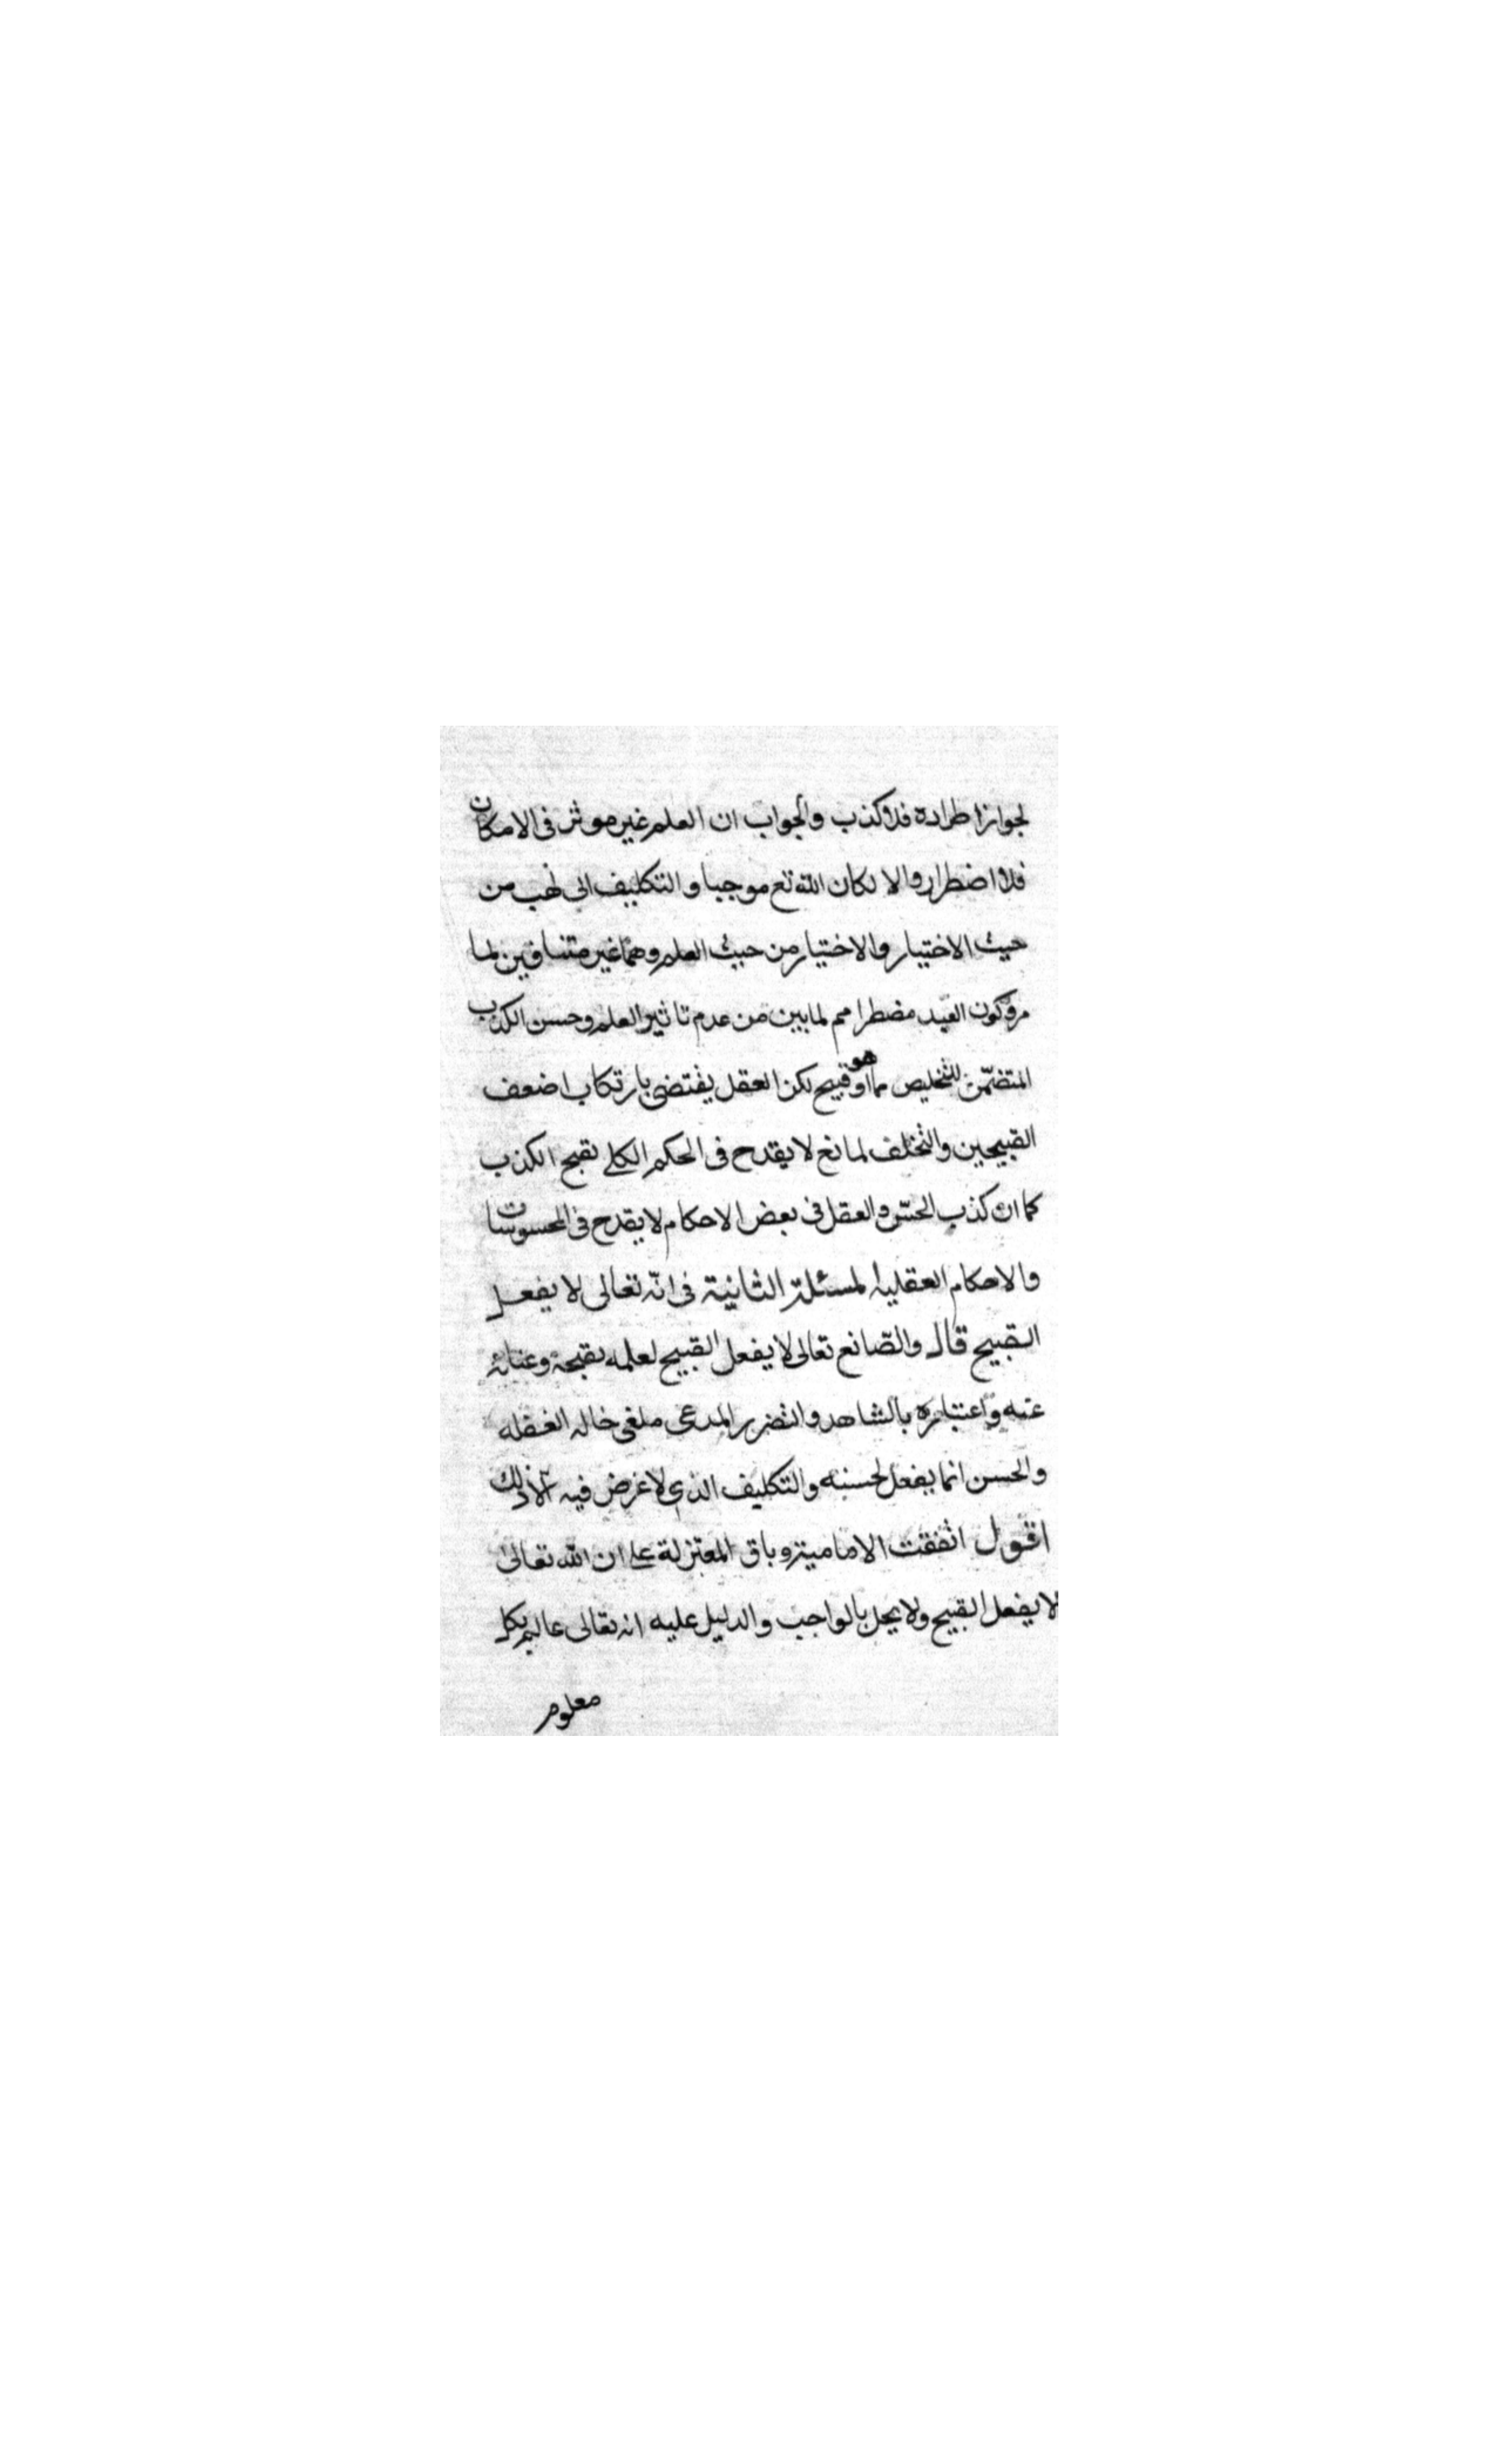 لجواز اطراده فلا كذب والجواب ان العلم غير موثر فى الامكان
فلا اضطرار والا لكان الله تع موجبا والتكليف الى لهب من
حيث الاختيار والاختيار من حيث العلم وهما غير متنافين لما
مر وكون العبد مضطرا مم لما بين من عدم تاثير العلم وحسن الكذب
المتضمّن للتخليص هو قبيح لكن العقل يقتضى بارتكاب اضعف
القبيحين والتخلف لمانع لا يقدح فى الحكم الكلى بقبح الكذب
كما ان كذب الحسّ والعقل فى بعض الاحكام لا يقدح فى المحسوسات
والاحكام العقلية المسئلة الثانية فى انّه تعالى لا يفعل
القبيح قال والصّانع تعالى لا يفعل القبيح لعلمه بقبحه وغنائه
عنه واعتباره بالشاهد والتضرر المدعى ملغى حاله الغفله
والحسن انما يفعل لحسنه والتكليف الذى لا غرض فيه الا ذلك
اقول اتفقت الامامية وباقى المعتزلة على ان الله تعالى
لا يفعل القبيح ولا يخل بالواجب والدليل عليه انه تعالى عالم بكل
معلوم